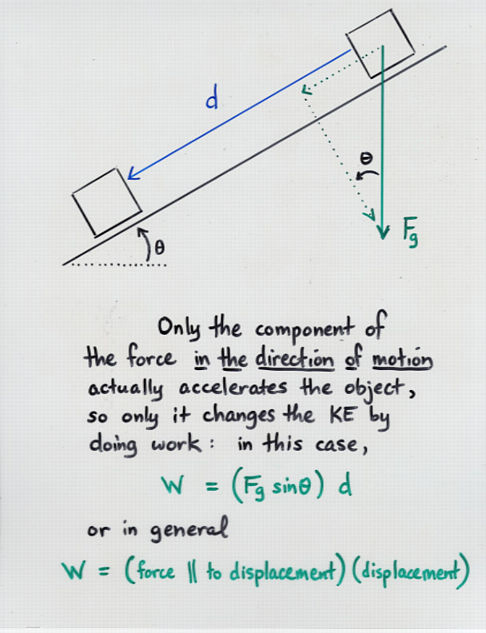 d
θ
Fg
θ
Only the component of
the force in the direction of motion
actually accelerates the object,
so only it changes the KE by
doing work: in this case,
W = (Fg sinθ) d
or in general
W = (force || to displacement)(displacement)